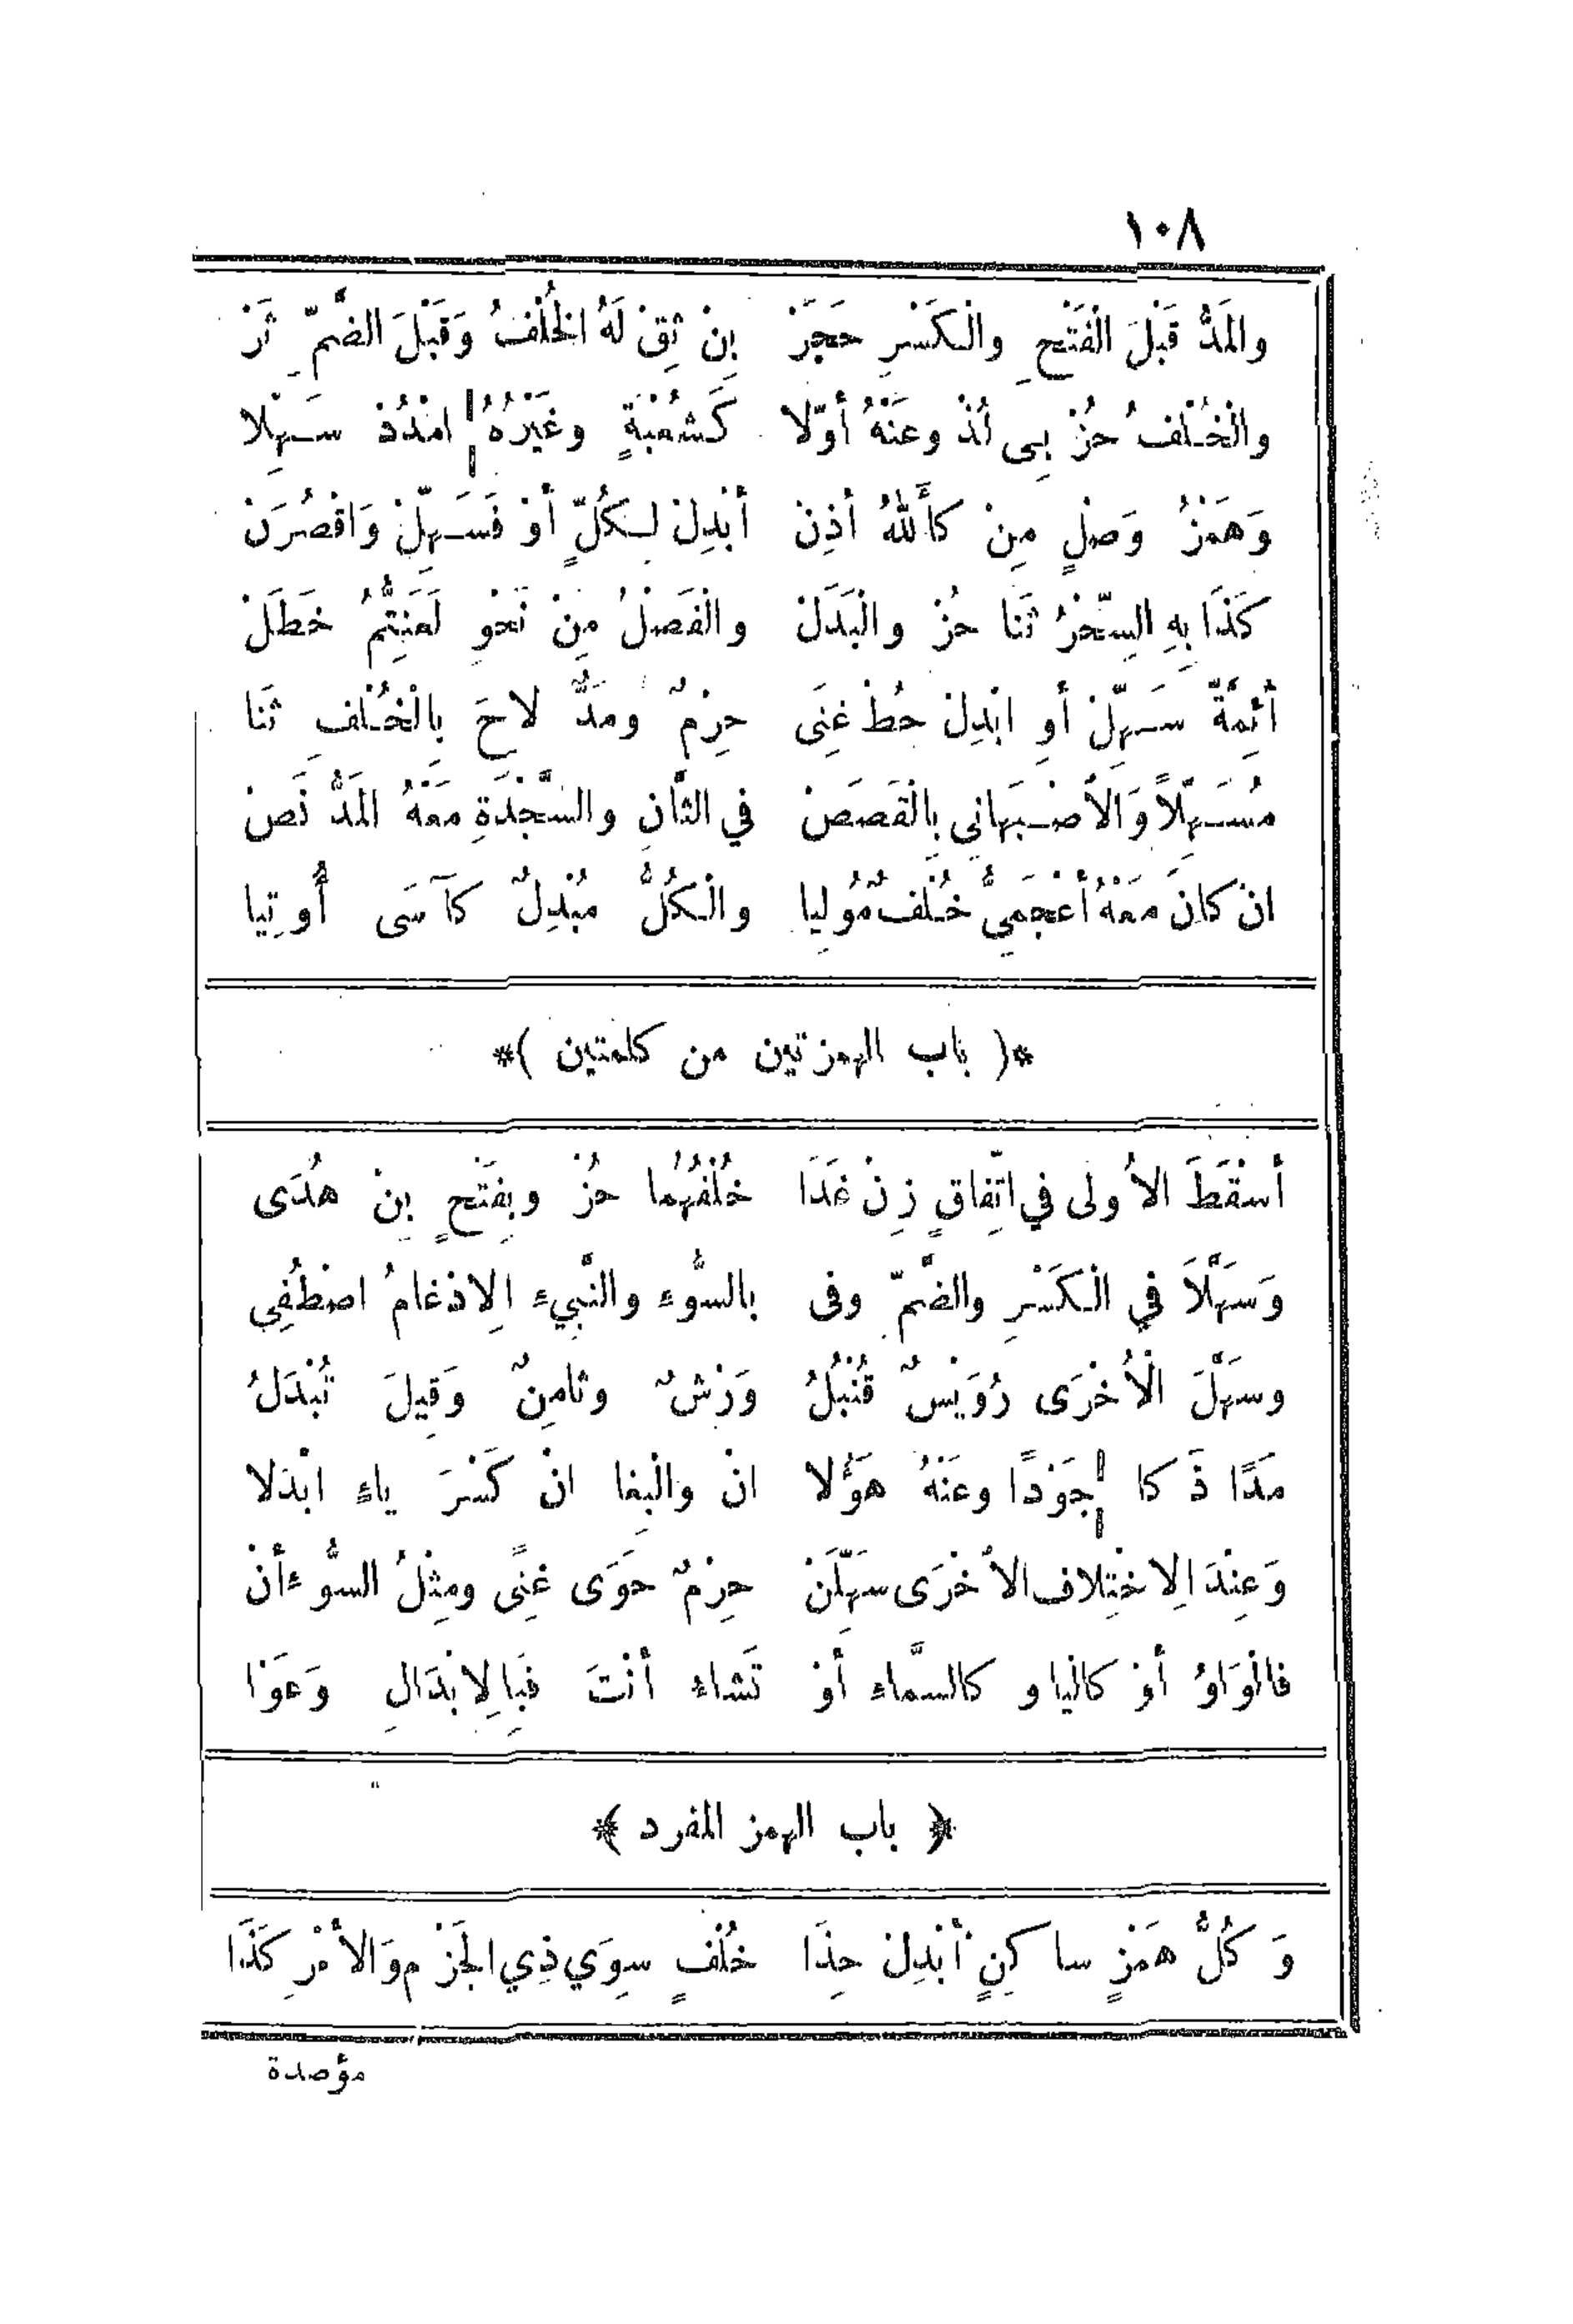 ١٠٨
والمَدُّ قَبْلَ الْفَتْحِ والْكَسْرِ حَجَرْ بِنْ ثِقْ لَهُ الْخُلْفُ وَقَبْلَ الضَّمِّ ثَرْ
والْخُلْفُ حُزْ بِى لُذْ وعَنْهُ أوّلا كَشُعْبَةٍ وغَيْرُهُ امْدُدْ سَهِّلا
وَهَمْزُ وَصْلٍ مِنْ كَآللهُ أذِنْ أبْدِلْ لِكُلٍّ أوْ فَسَهِّلْ وَاقْصُرَنْ
كَذَا بِهِ السِّحْرُ ثَنا حُزْ والْبَدَلْ والْفَصْلُ مِنْ نَحْوِ ءَآمَنْتُمُ خَطَلْ
أَئِمَّةَ سَهِّلْ أو ابْدِلْ حُطْ غِنَى حِرْمٌ ومَدٌّ لاحَ بِالْخُلْفِ ثَنا
مُسَهِّلاً وَالأصْبَهانِي بِالْقَصَصْ فِي الثَّانِ والسَّجْدَةِ مَعْهُ المَدُّ نَصْ
انْ كانَ مَعْهُ أعْجَمِيٌّ خُلْفٌ مُولِيا والْكُلُّ مُبْدِلٌ كآسَى أُوتِيا
*( باب الهمزتين من كلمتين )*
أسْقَطَ الأُولى في اتِّفاقٍ زِنْ غَدَا خُلْفُهُما حُزْ وبِفَتْحٍ بِنْ هُدَى
وَسَهَّلاَ فِي الْكَسْرِ والضَّمِّ وفى بالسُّوءِ والنَّبِيءِ الِادْغامُ اصْطُفِي
وسَهَّلَ الْأُخْرَى رُوَيْسٌ قُنْبُلُ وَرْشٌ وثامِنٌ وَقِيلَ تُبْدَلُ
مَدًا ذَكا جَوْدًا وعَنْهُ هَؤُلا انْ والْبِغا انْ كَسْرَ ياءٍ ابْدَلا
وَعِنْدَ الِاخْتِلاف الأُخْرَى سَهِّلَنْ حِرْمٌ حَوَى غِنًى ومِثْلُ السُّوءُ أنْ
فالْوَاوُ أوْ كالْيا و كالسَّماءِ أوْ تَشاءُ أنْتَ فَبِالِابْدَالِ وَعَوْا
﴿ باب الهمز المفرد ﴾
وَكُلُّ هَمْزٍ ساكِنٍ أبْدِلْ حِذَا خُلْفٍ سِوَي ذِي الجَزْمِ وَالأمْرِ كَذَا
مؤصدة